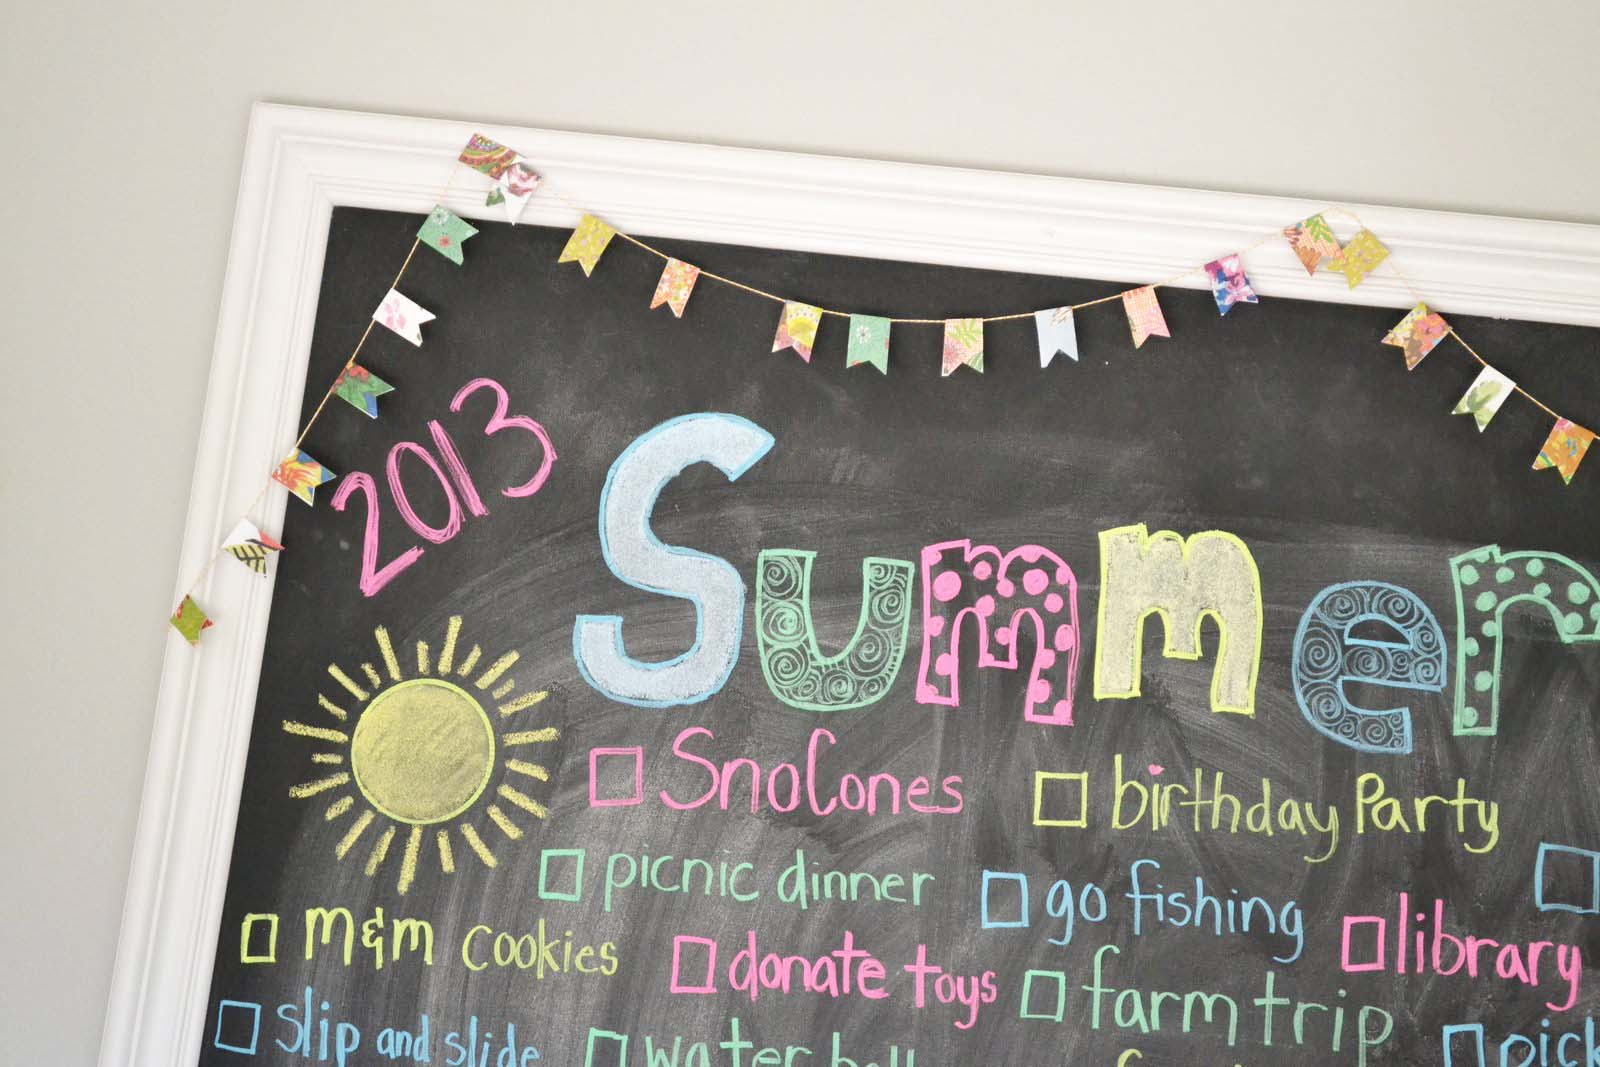 2013
Summer
SnoCones
birthday Party
picnic dinner
go fishing
m&m cookies
donate toys
library
slip and slide
farm trip
water
pick